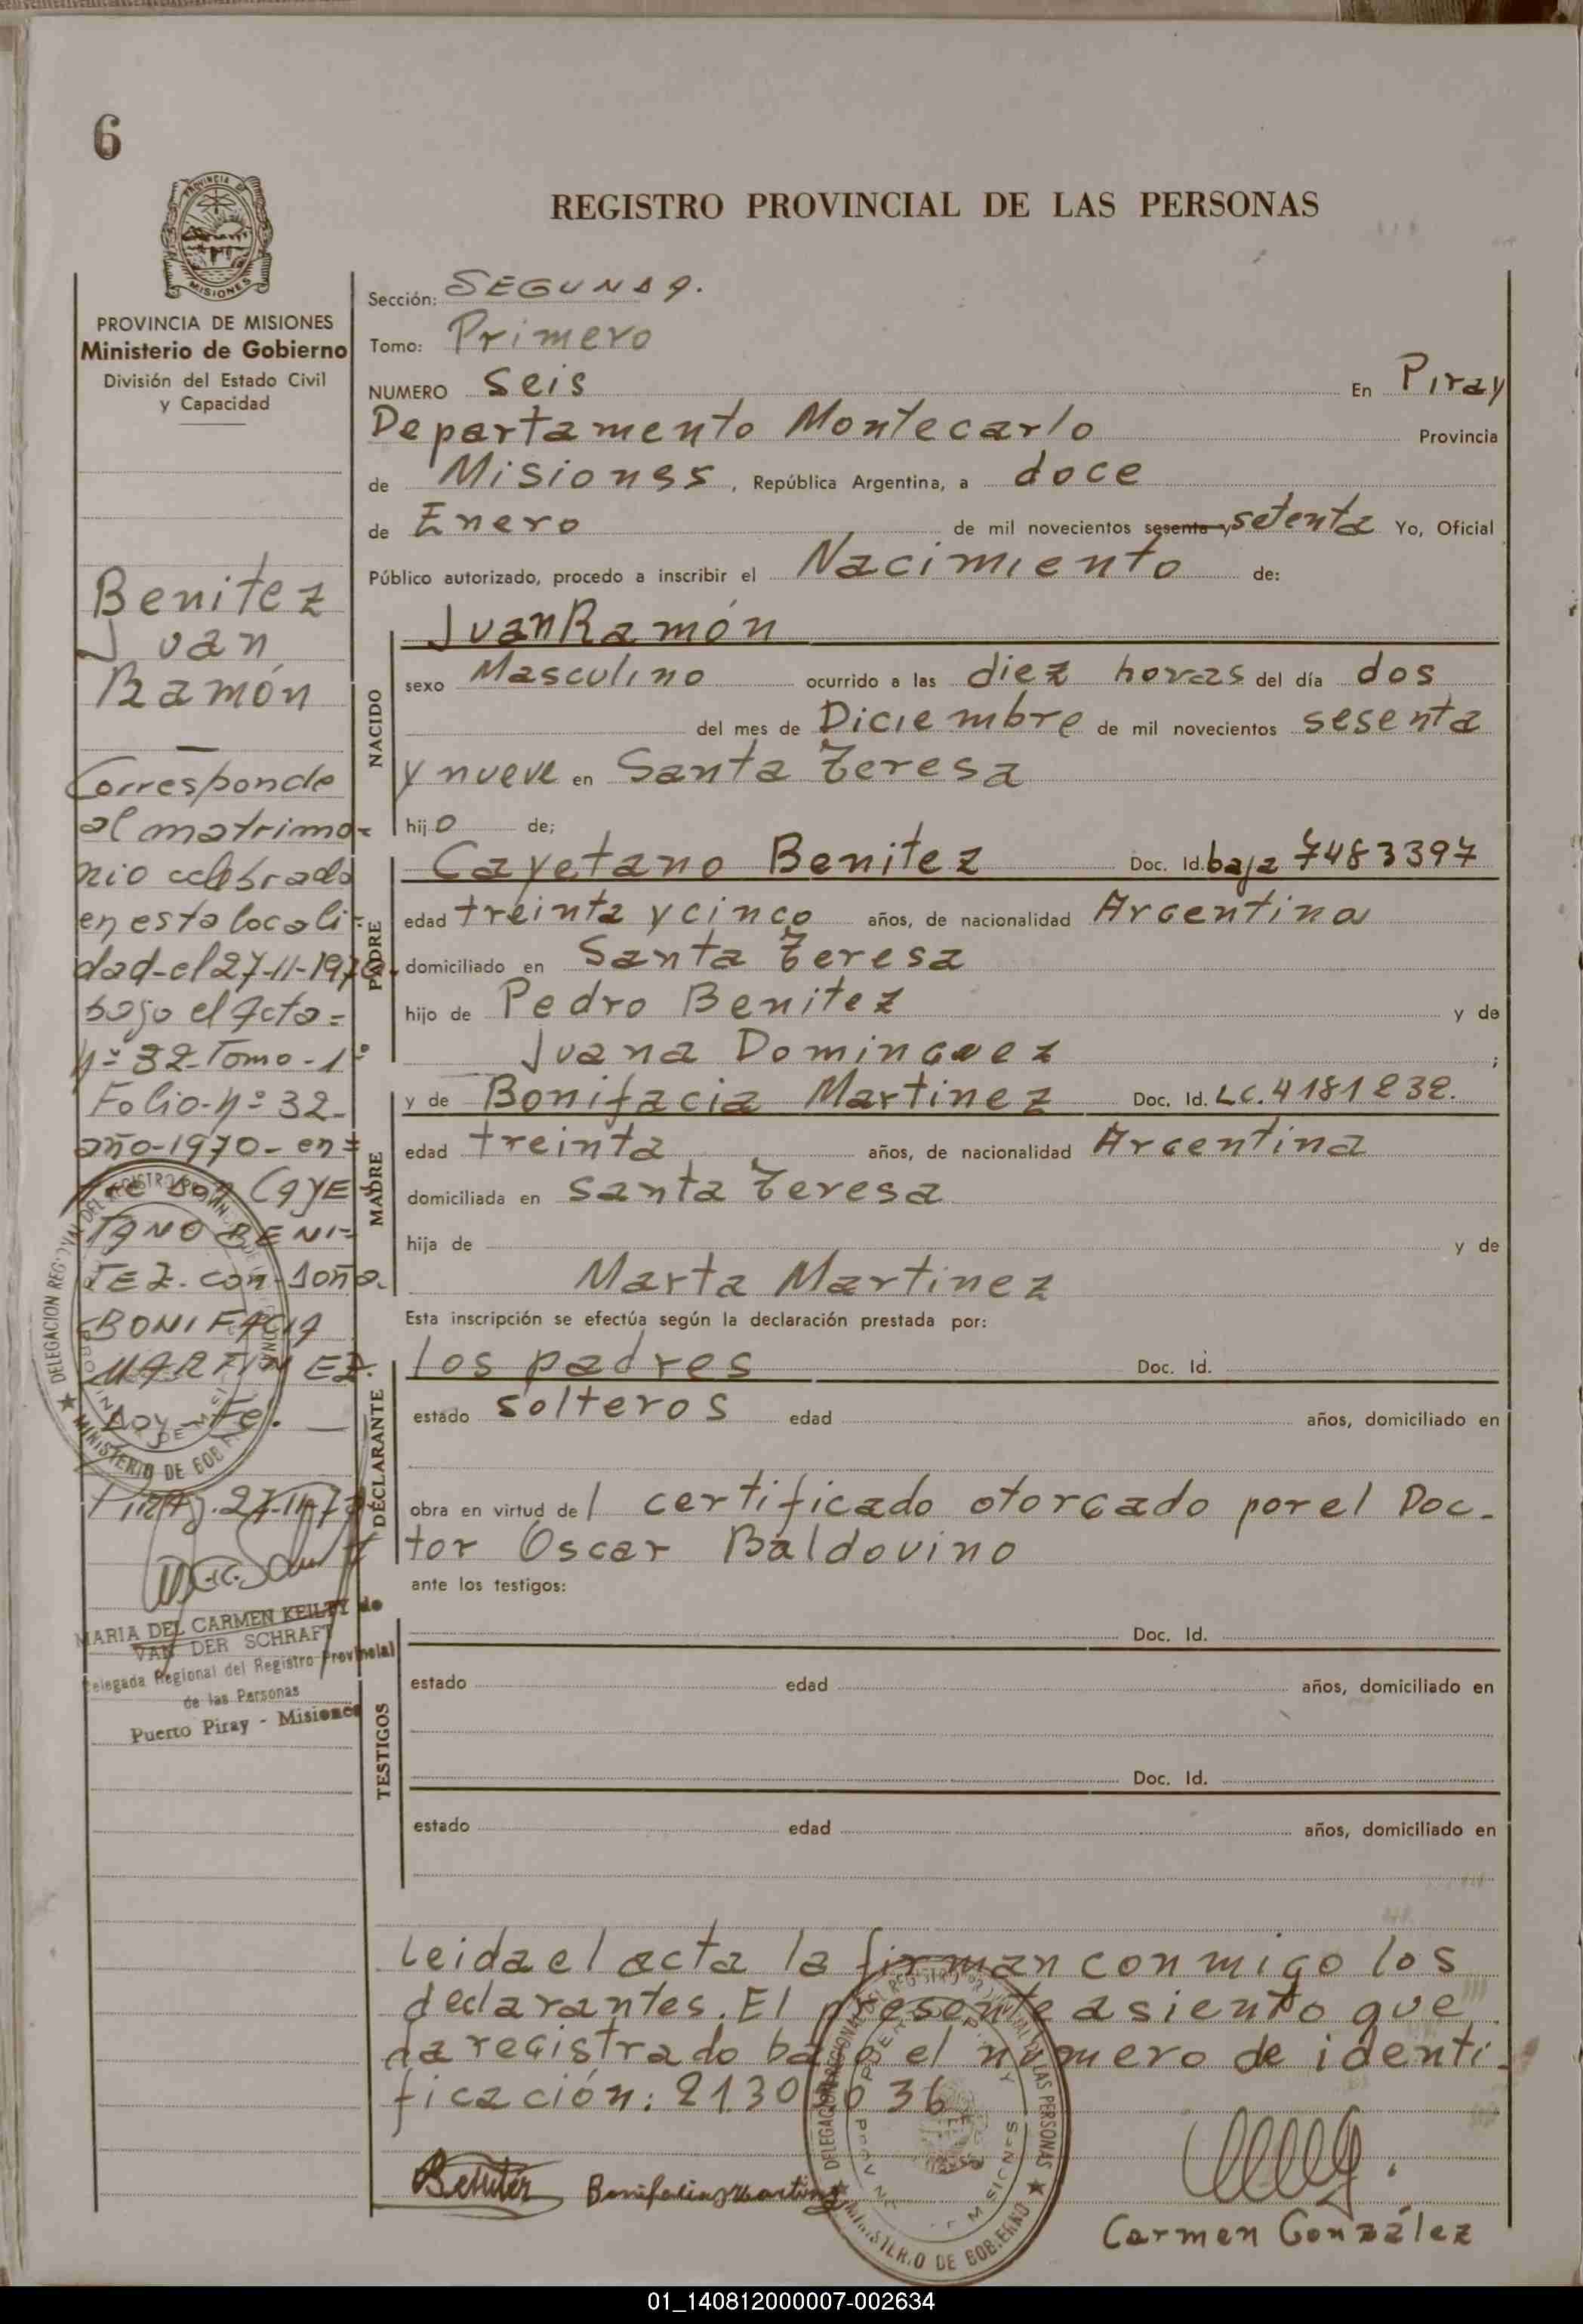 6
PROVINCIA DE
MISIONES
REGISTRO PROVINCIAL DE LAS PERSONAS
PROVINCIA DE MISIONES
Ministerio de Gobierno
División del Estado Civil
y Capacidad
Benitez
Juan
Ramón
Corresponde
al matrimo=
nio celebrado
en esta locali=
dad-el 27-11-1970.
bajo el Acta=
Nº 32-Tomo-1º
Folio-Nº 32-
año-1970- en=
tre Don CAYE=
TANO BENI=
TEZ. con-Doña.
BONIFACIA
MARTINEZ.
Doy-Fe.
Piray.27-11-70
MARIA DEL CARMEN KEILTY de
VAN DER SCHRAFT
Delegada Regional del Registro Provincial
de las Personas
Puerto Piray - Misiones
Sección: SEGUNDA.
Tomo: Primero
NUMERO Seis En Piray
Departamento Montecarlo Provincia
de Misiones, República Argentina, a doce
de Enero de mil novecientos sesenta y setenta Yo, Oficial
Público autorizado, procedo a inscribir el Nacimiento de:
NACIDO
Juan Ramón
sexo Masculino ocurrido a las diez horas del día dos
del mes de Diciembre de mil novecientos sesenta
y nueve en Santa Teresa
hijo de;
PADRE
Cayetano Benitez Doc. Id. baja 7483397
edad treinta y cinco años, de nacionalidad Argentina
domiciliado en Santa Teresa
hijo de Pedro Benitez y de
Juana Dominguez ;
MADRE
y de Bonifacia Martinez Doc. Id. LC. 4181232.
edad treinta años, de nacionalidad Argentina
domiciliada en Santa Teresa
hija de y de
Marta Martinez
Esta inscripción se efectúa según la declaración prestada por:
DECLARANTE
los padres Doc. Id.
estado solteros edad años, domiciliado en
obra en virtud del certificado otorgado por el Doc-
tor Oscar Baldovino
ante los testigos:
TESTIGOS
Doc. Id.
estado edad años, domiciliado en
Doc. Id.
estado edad años, domiciliado en
Leida el acta la firman conmigo los
declarantes. El presente asiento que
da registrado bajo el número de identi-
ficación: 21.30 36
Benitez Bonifacia Martinez
Carmen González
DELEGACION REGIONAL DEL REGISTRO PROVINCIAL DE LAS PERSONAS
MINISTERIO DE GOBIERNO
01_140812000007-002634